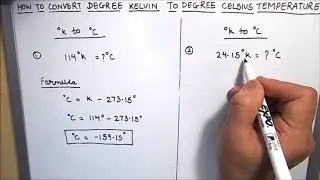 HOW TO CONVERT DEGREE KELVIN TO DEGREE CELSIUS TEMPERATURE
°k to °C
① 114°k = ?°C
Formula
°C = k - 273.15°
°C = 114° - 273.15°
°C = -159.15°
°k to °C
② 24.15°k = ?°C